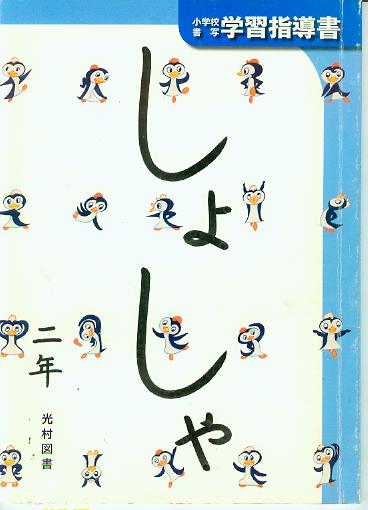 小学校
書写
学習指導書
しょしゃ
二年
光村図書